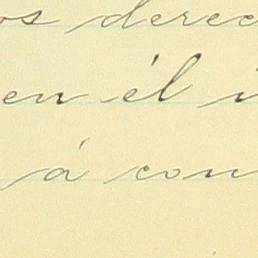 os derec
en él i
á con